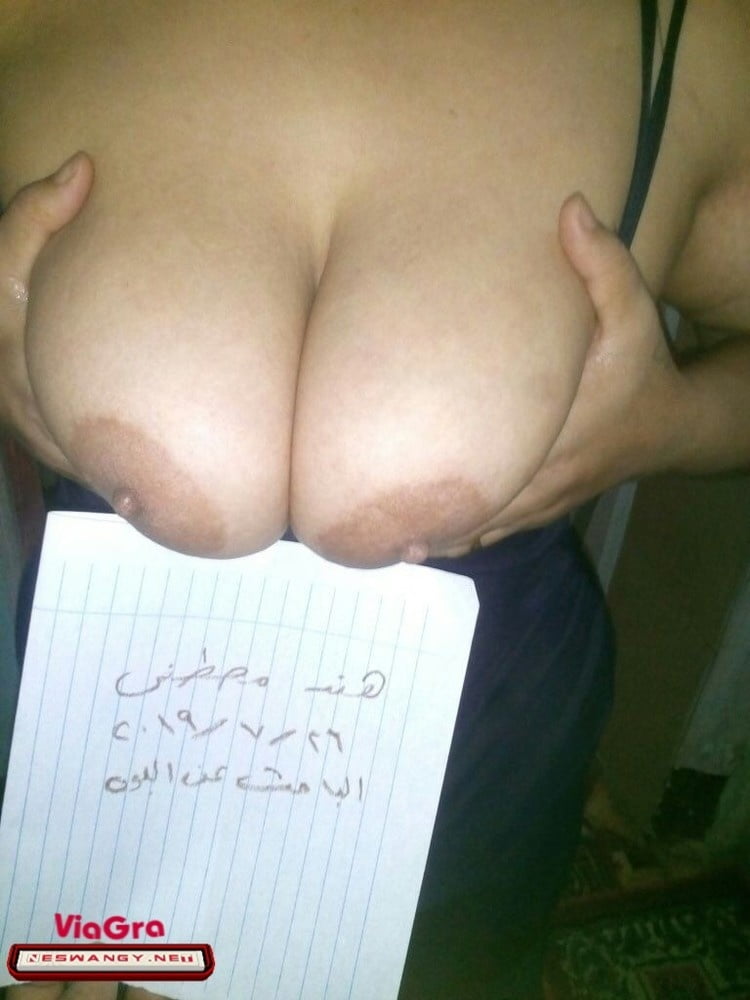 هند مصطفى
٢٠١٩/٧/٢٦
الباحث عن
ViaGra
NESWANGY.NET